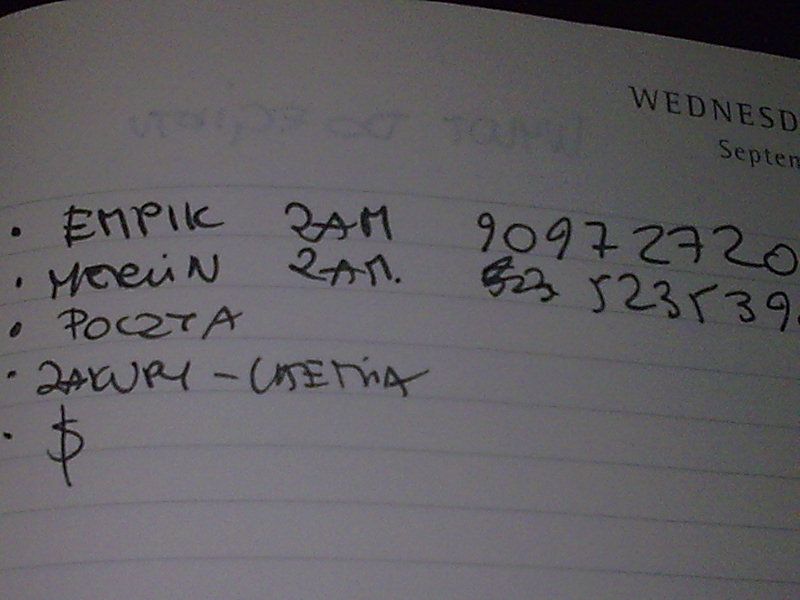 WEDNESD
Septem
• EMPIK ZAM 90972720
• MERLIN ZAM. 523539
• POCZTA
• ZAKUPY - CHEMIA
• $